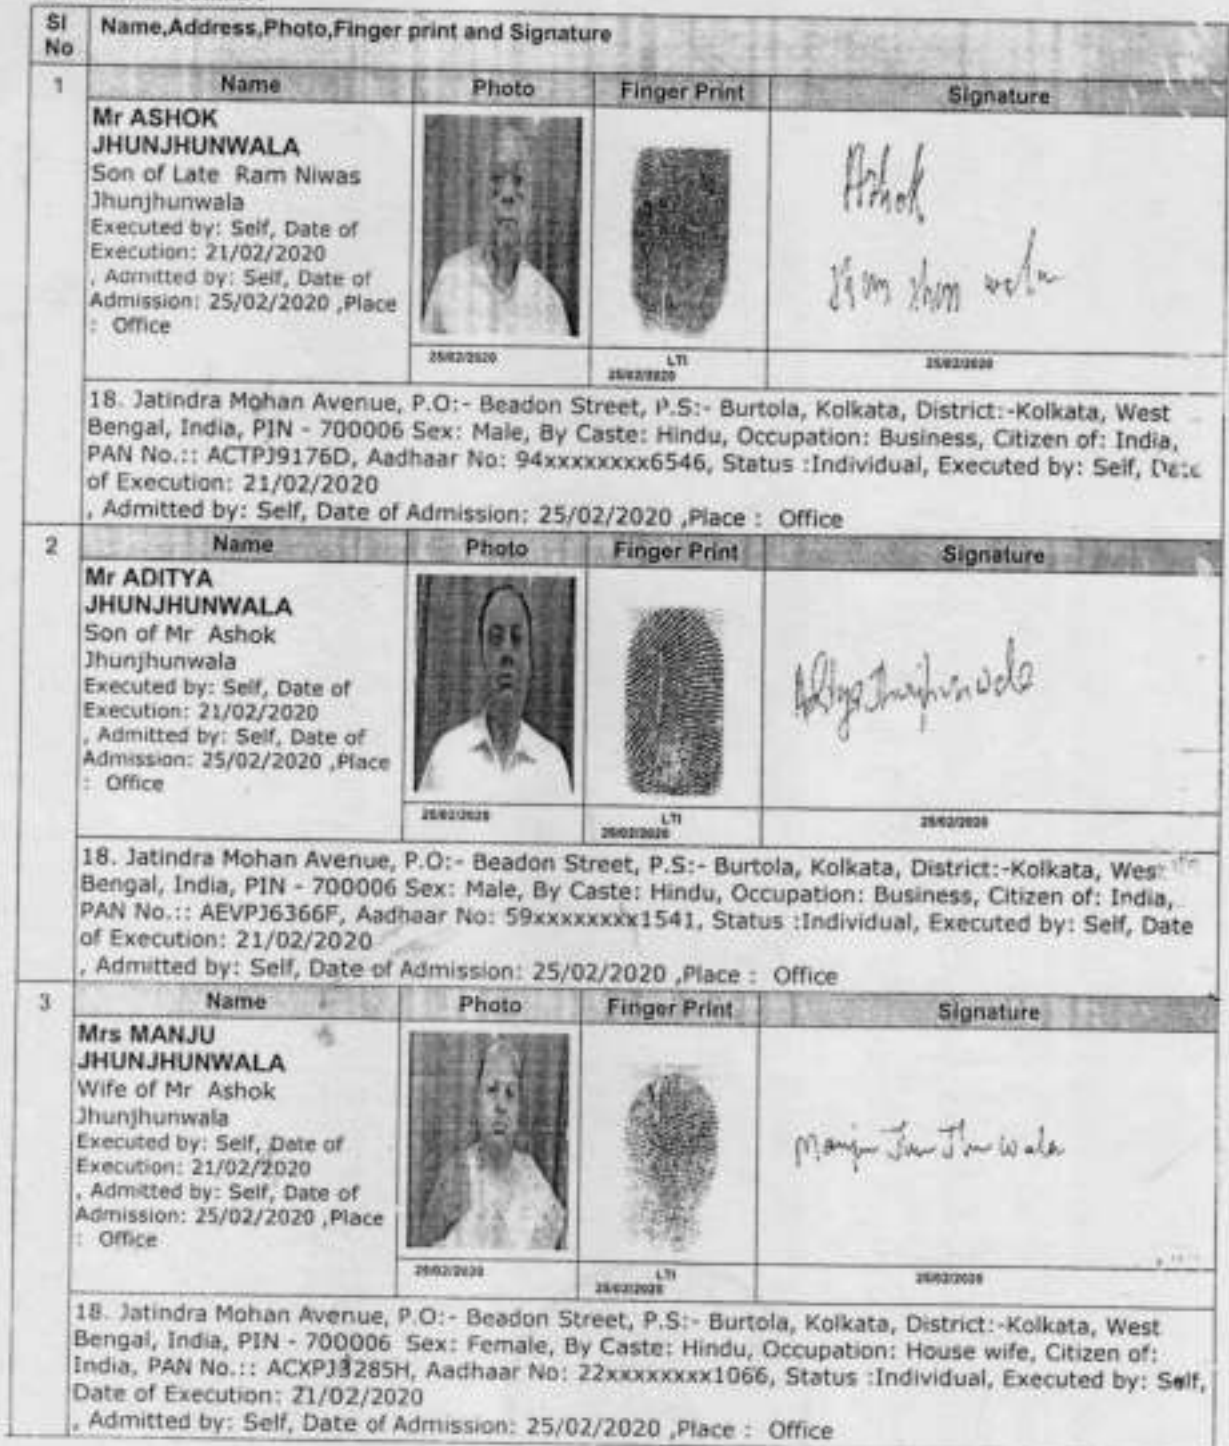 Sl No
Name,Address,Photo,Finger print and Signature
1
Name Photo Finger Print Signature
Mr ASHOK
JHUNJHUNWALA
Son of Late Ram Niwas
Jhunjhunwala
Executed by: Self, Date of
Execution: 21/02/2020
, Admitted by: Self, Date of
Admission: 25/02/2020 ,Place
: Office
Ashok
25/02/2020 LTI 25/02/2020 25/02/2020
18. Jatindra Mohan Avenue, P.O:- Beadon Street, P.S:- Burtola, Kolkata, District:-Kolkata, West
Bengal, India, PIN - 700006 Sex: Male, By Caste: Hindu, Occupation: Business, Citizen of: India,
PAN No.:: ACTPJ9176D, Aadhaar No: 94xxxxxxxx6546, Status :Individual, Executed by: Self, Date
of Execution: 21/02/2020
, Admitted by: Self, Date of Admission: 25/02/2020 ,Place : Office
2
Name Photo Finger Print Signature
Mr ADITYA
JHUNJHUNWALA
Son of Mr Ashok
Jhunjhunwala
Executed by: Self, Date of
Execution: 21/02/2020
, Admitted by: Self, Date of
Admission: 25/02/2020 ,Place
: Office
Aditya Jhunjhunwala
25/02/2020 LTI 25/02/2020 25/02/2020
18. Jatindra Mohan Avenue, P.O:- Beadon Street, P.S:- Burtola, Kolkata, District:-Kolkata, West
Bengal, India, PIN - 700006 Sex: Male, By Caste: Hindu, Occupation: Business, Citizen of: India,
PAN No.:: AEVPJ6366F, Aadhaar No: 59xxxxxxxx1541, Status :Individual, Executed by: Self, Date
of Execution: 21/02/2020
, Admitted by: Self, Date of Admission: 25/02/2020 ,Place : Office
3
Name Photo Finger Print Signature
Mrs MANJU
JHUNJHUNWALA
Wife of Mr Ashok
Jhunjhunwala
Executed by: Self, Date of
Execution: 21/02/2020
, Admitted by: Self, Date of
Admission: 25/02/2020 ,Place
: Office
Manju Jhun Jhun Wala
25/02/2020 LTI 25/02/2020 25/02/2020
18. Jatindra Mohan Avenue, P.O:- Beadon Street, P.S:- Burtola, Kolkata, District:-Kolkata, West
Bengal, India, PIN - 700006 Sex: Female, By Caste: Hindu, Occupation: House wife, Citizen of:
India, PAN No.:: ACXPJ3285H, Aadhaar No: 22xxxxxxxx1066, Status :Individual, Executed by: Self,
Date of Execution: 21/02/2020
, Admitted by: Self, Date of Admission: 25/02/2020 ,Place : Office